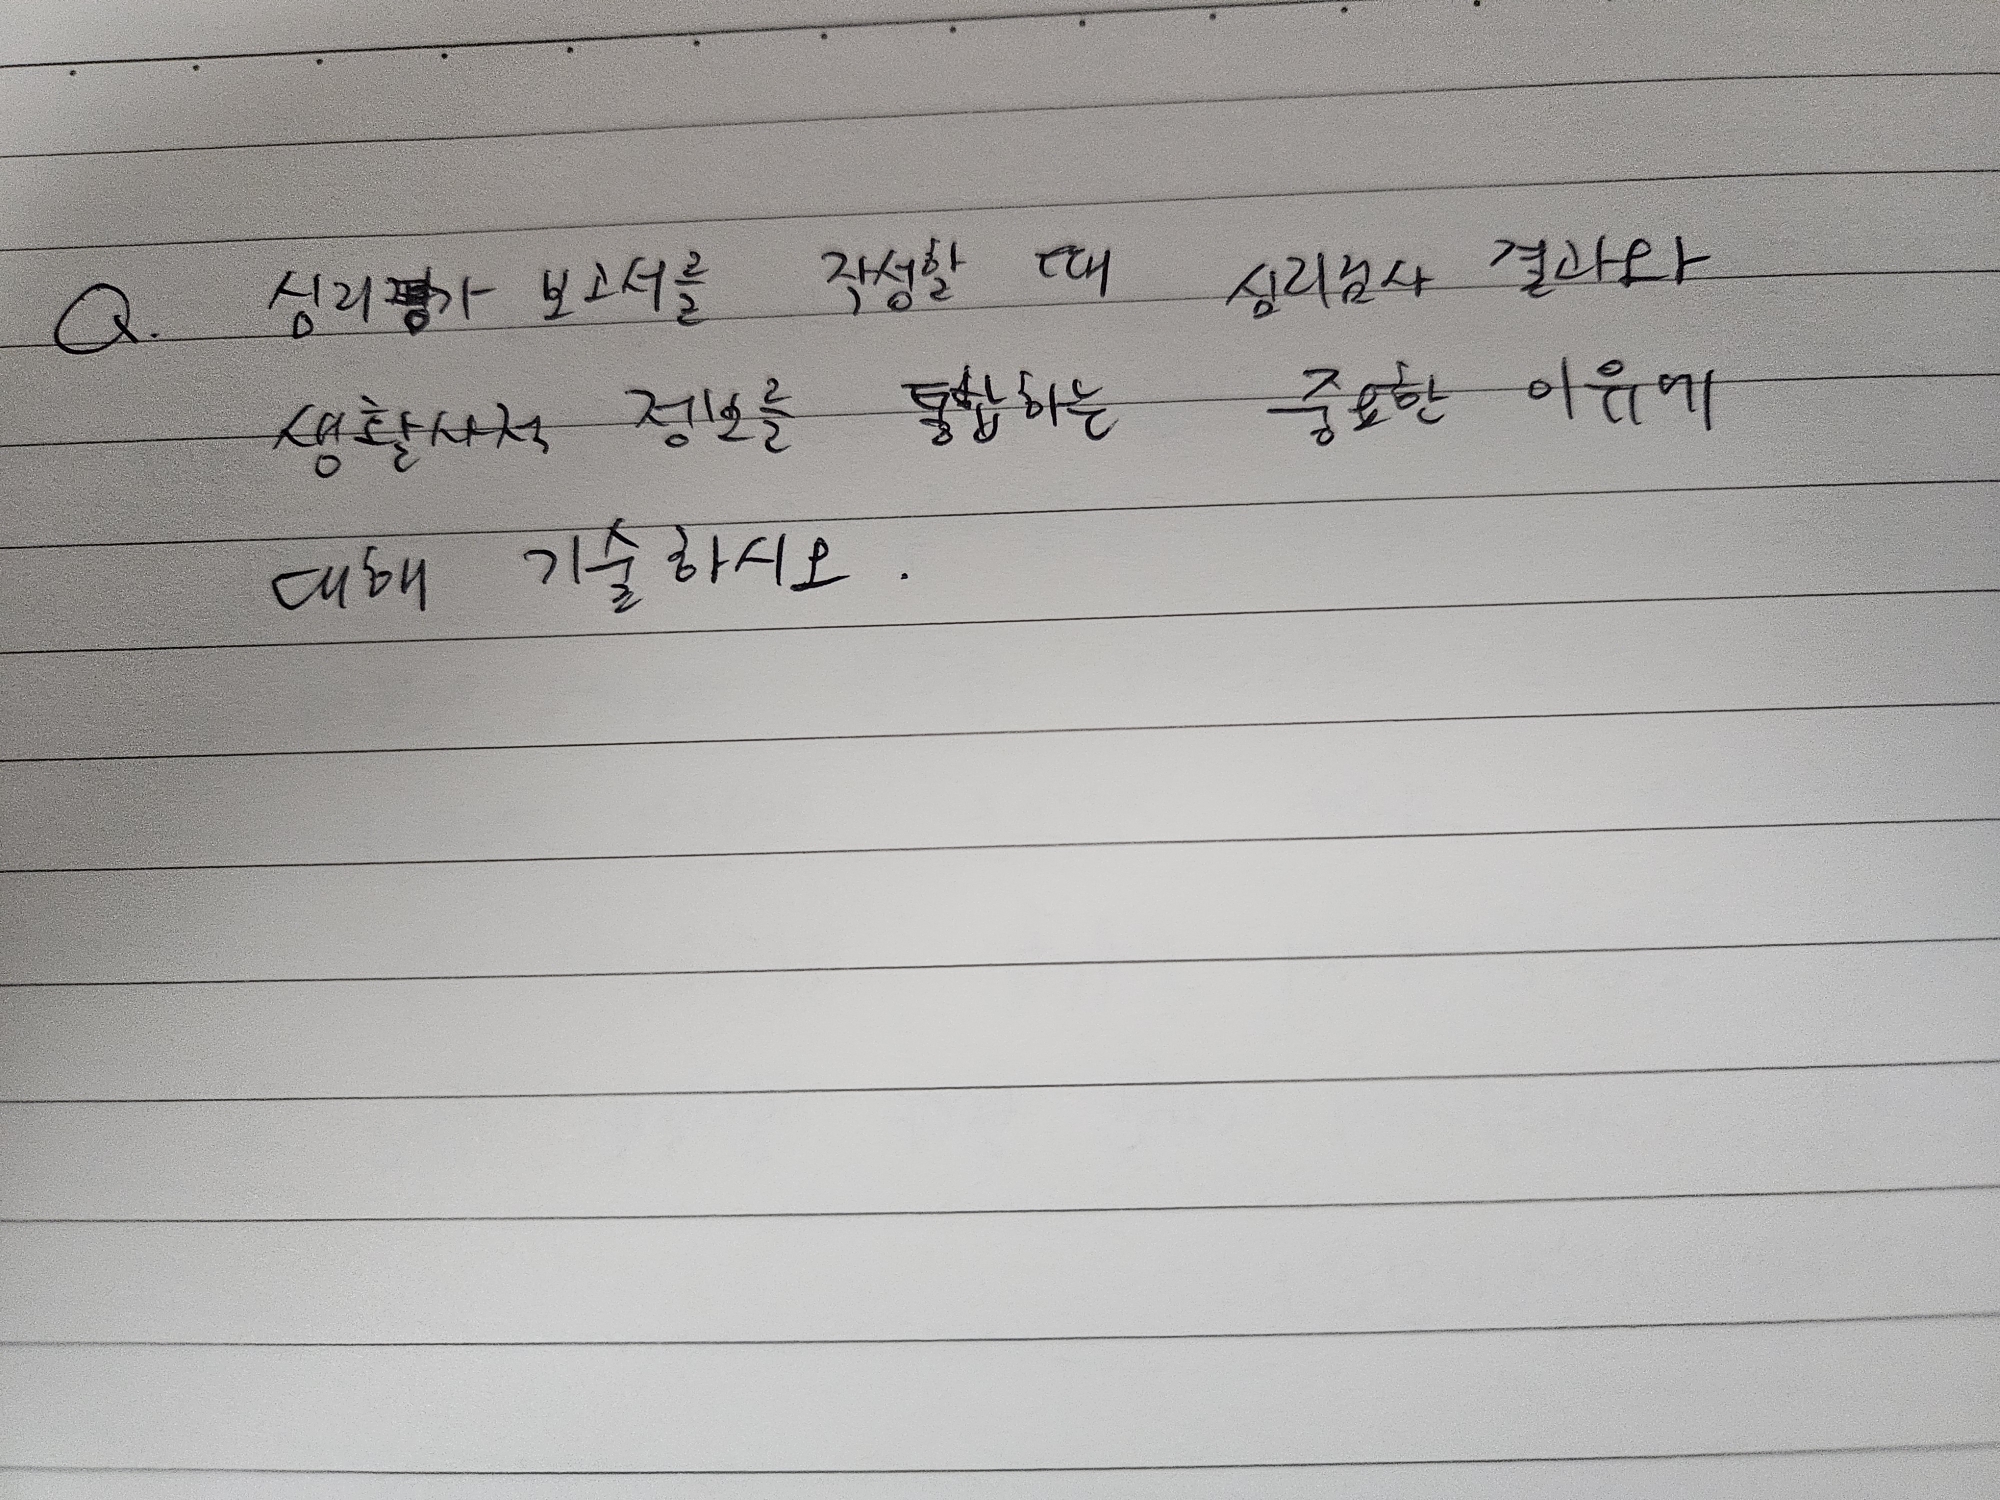 Q. 심리평가 보고서를 작성할 때 심리검사 결과와
생활사적 정보를 통합하는 중요한 이유에
대해 기술하시오.